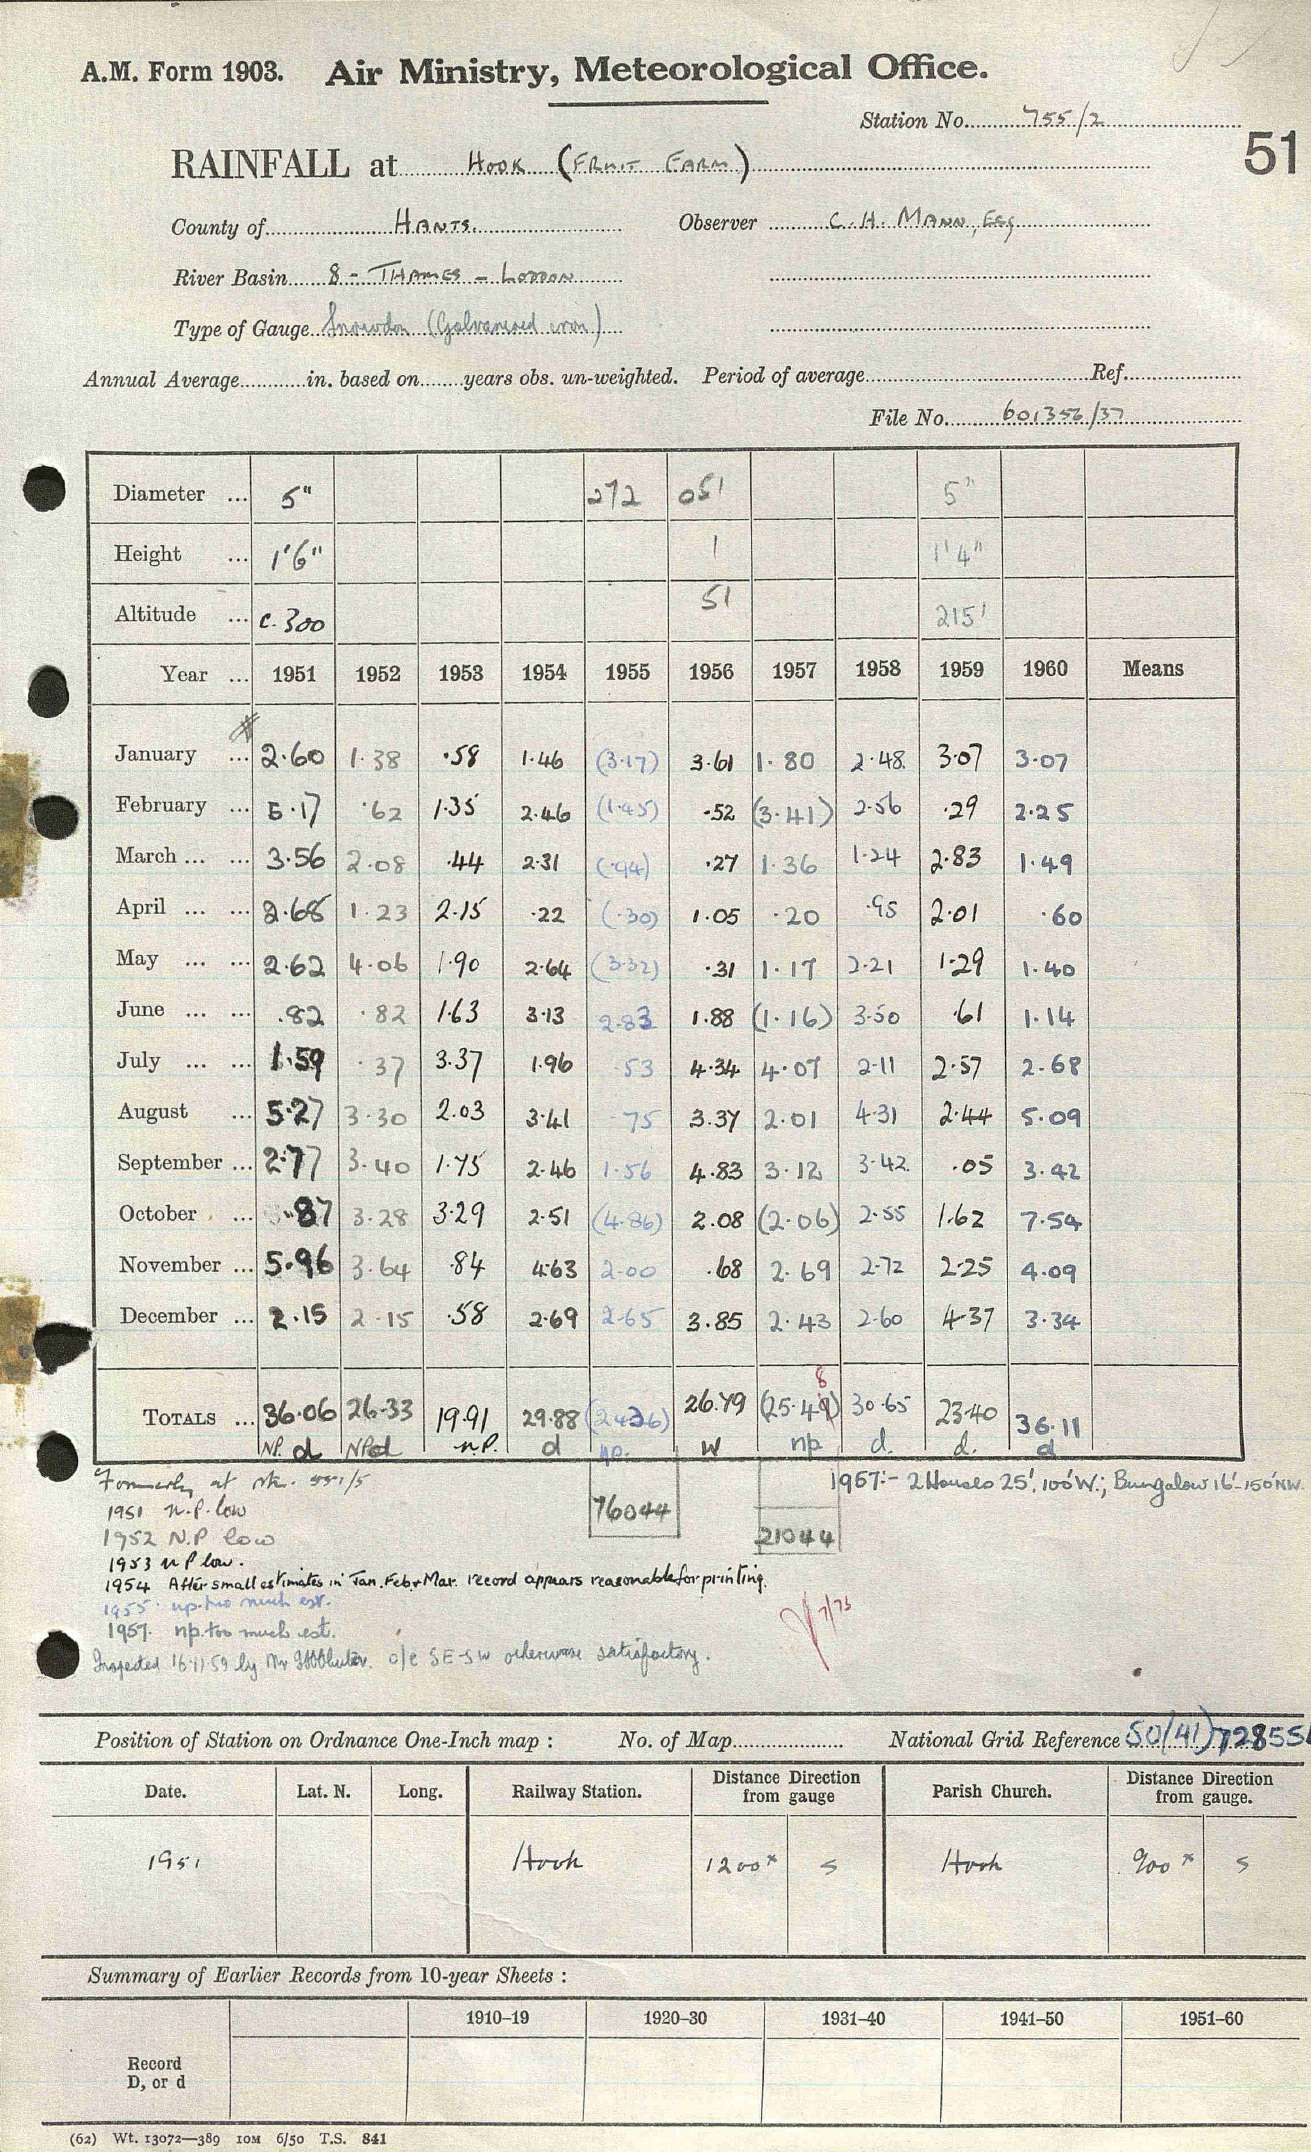 A.M. Form 1903. Air Ministry, Meteorological Office.
Station No. 755/2
51
RAINFALL at HOOK (FRUIT FARM)
County of HANTS. Observer C. H. MANN, ESQ
River Basin 8 - THAMES - LODDON
Type of Gauge Snowdon (Galvanised iron)
Annual Average............in. based on........years obs. un-weighted. Period of average............Ref............
File No. 601356/37
Diameter ... 5" 272 051 5"
Height ... 1'6" 1 1'4"
Altitude ... c. 300 51 215'
Year ... 1951 1952 1953 1954 1955 1956 1957 1958 1959 1960 Means
January ... 2.60 1.38 .58 1.46 (3.17) 3.61 1.80 2.48 3.07 3.07
February ... 5.17 .62 1.35 2.46 (1.45) .52 (3.41) 2.56 .29 2.25
March ... ... 3.56 2.08 .44 2.31 (.94) .27 1.36 1.24 2.83 1.49
April ... ... 2.68 1.23 2.15 .22 (.30) 1.05 .20 .95 2.01 .60
May ... ... 2.62 4.06 1.90 2.64 (3.32) .31 1.17 2.21 1.29 1.40
June ... ... .82 .82 1.63 3.13 2.83 1.88 (1.16) 3.50 .61 1.14
July ... ... 1.59 .37 3.37 1.96 .53 4.34 4.07 2.11 2.57 2.68
August ... 5.27 3.30 2.03 3.41 .75 3.37 2.01 4.31 2.44 5.09
September ... 2.77 3.40 1.75 2.46 1.56 4.83 3.12 3.42 .05 3.42
October ... .87 3.28 3.29 2.51 (4.86) 2.08 (2.06) 2.55 1.62 7.54
November ... 5.96 3.64 .84 4.63 2.00 .68 2.69 2.72 2.25 4.09
December ... 2.15 2.15 .58 2.69 2.65 3.85 2.43 2.60 4.37 3.34
8
TOTALS ... 36.06 26.33 19.91 29.88 (24.36) 26.79 (25.49) 30.65 23.40 36.11
NP. d NPd n.P. d np. W np d. d. d
Formerly at 551/5
1957:- 2 Houses 25', 100'W.; Bungalow 16'-150'NW.
1951 N.P. low
76044
1952 N.P low
21044
1953 n P low.
1954 After small estimates in Jan, Feb & Mar. record appears reasonable for printing.
1955 n.p. too much est.
1957. n.p. too much est.
7/73
Inspected 16.11.59 by Mr o/e SE-SW otherwise satisfactory.
Position of Station on Ordnance One-Inch map : No. of Map.................. National Grid Reference 50(41)72855
Date. Lat. N. Long. Railway Station. Distance from gauge Direction Parish Church. Distance from gauge. Direction
1951 Hook 1200x S Hook 900x S
Summary of Earlier Records from 10-year Sheets :
1910-19 1920-30 1931-40 1941-50 1951-60
Record
D, or d
(62) Wt. 13072—389 10M 6/50 T.S. 841